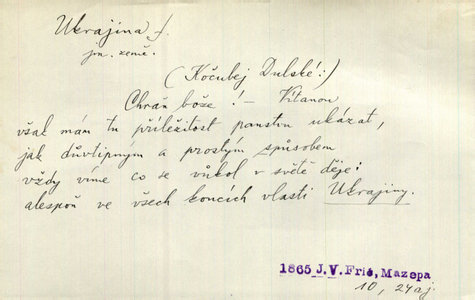 Ukrajina f.
jm. země.
(Kočubej Dulské:)
Chraň bože! – Vítanou
však mám tu příležitost panstvu ukázat,
jak důvtipným a prostým spůsobem
vždy víme co se vůkol v světě děje:
alespoň ve všech koncích vlasti Ukrajiny.
1865 J. V. Frič, Mazepa
10, 24aj.